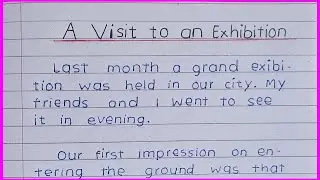 A Visit to an Exhibition
Last month a grand exibi-
tion was held in our city. My
friends and I went to see
it in evening.
Our first impression on en-
tering the ground was that